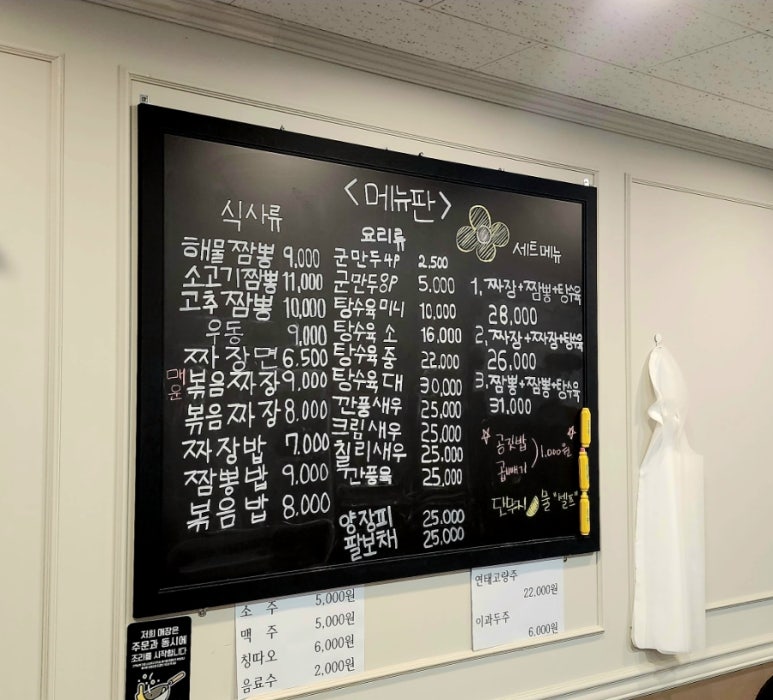 <메뉴판>
식사류
해물짬뽕 9,000
소고기짬뽕 11,000
고추짬뽕 10,000
우동 9,000
짜장면 6.500
매운 볶음짜장 9,000
볶음짜장 8.000
짜장밥 7.000
짬뽕밥 9.000
볶음밥 8.000
요리류
군만두4P 2.500
군만두8P 5,000
탕수육미니 10,000
탕수육 소 16,000
탕수육 중 22,000
탕수육 대 30,000
깐풍새우 25,000
크림새우 25,000
칠리새우 25.000
깐풍육 25,000
양장피 25.000
팔보채 25.000
세트메뉴
1, 짜장+짬뽕+탕수육
28,000
2, 짜장+짜장+탕수육
26,000
3. 짬뽕+짬뽕+탕수육
31,000
공깃밥
곱빼기 ) 1.000원
단무지 물 "셀프"
소 주 5,000원
맥 주 5,000원
칭따오 6,000원
음료수 2,000원
연태고량주
22,000원
이과두주
6,000원
저희 매장은
주문과 동시에
조리를 시작합니다